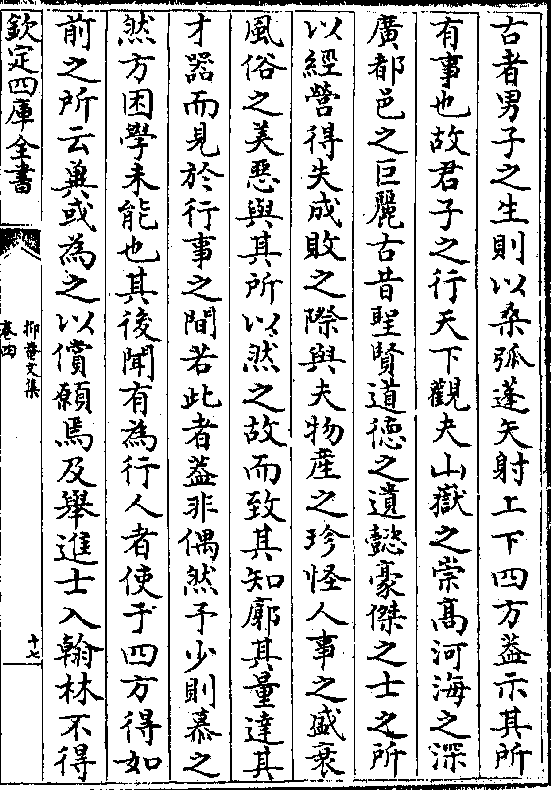 古者男子之生則以桑弧蓬矢射上下四方葢示其所
有事也故君子之行天下觀夫山嶽之崇髙河海之深
廣都邑之巨麗古昔聖賢道德之遺懿豪傑之士之所
以經營得失成敗之際與夫物産之珍怪人事之盛衰
風俗之美惡與其所以然之故而致其知廓其量達其
才噐而見於行事之間若此者葢非偶然予少則慕之
然方困學未能也其後聞有為行人者使于四方得如
前之所云兾或為之以償願焉及舉進士入翰林不得
欽定四庫全書
抑菴文集
卷四
十七